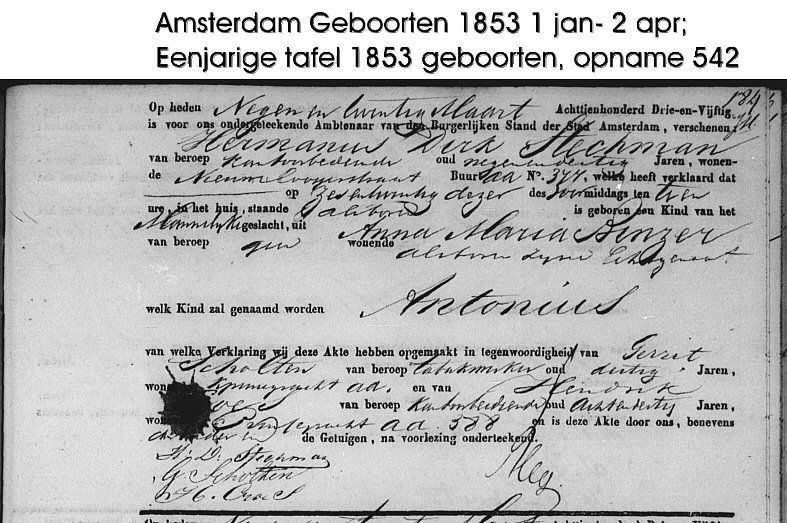 Amsterdam Geboorten 1853 1 jan- 2 apr;
Eenjarige tafel 1853 geboorten, opname 542
184
Op heden Negen en twintig Maart Achttienhonderd Drie-en-Vijftig
is voor ons ondergeteekende Ambtenaar van den Burgerlijken Stand der Stad Amsterdam, verschenen
Hermanus Dirk Stechman
van beroep Kantoorbediende oud negenendertig Jaren, wonen-
de Nieuwe Looyerstraat Buurt aa No. 377, welke heeft verklaard dat
op zesentwintig dezer des voormiddags ten tien
ure, in het huis, staande alsboven is geboren een Kind van het
Mannelijk geslacht, uit Anna Maria Binzer
van beroep geen wonende alsboven zyne Echtgenoot
welk Kind zal genaamd worden Antonius
van welke Verklaring wij deze Akte hebben opgemaakt in tegenwoordigheid van Gerrit
Scholten van beroep oud dertig Jaren,
won aa. en van Hendrik
van beroep Kantoorbediende oud Achtendertig Jaren,
won aa. 588 en is deze Akte door ons, benevens
de Getuigen, na voorlezing onderteekend.
H. D. Stechman
G. Scholten
H.